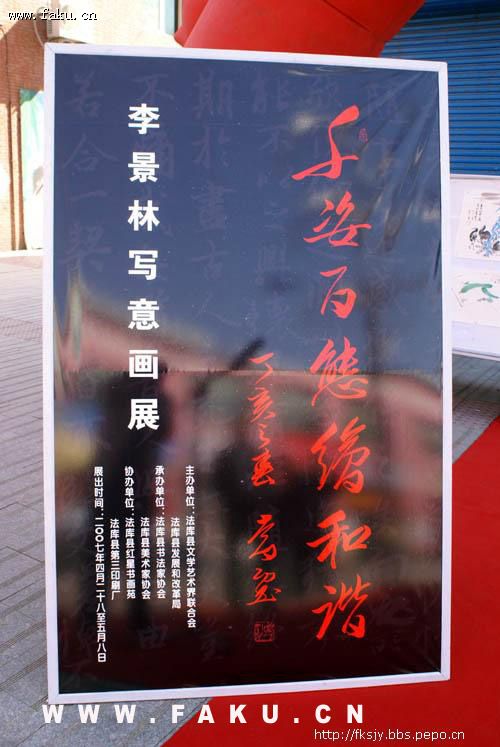 www.faku.cn
千姿百態繪和谐
丁亥之春
李景林写意画展
主办单位：法库县文学艺术界联合会
法库县发展和改革局
承办单位：法库县书法家协会
法库县美术家协会
协办单位：法库县红星书画苑
法库县第三印刷厂
展出时间：二〇〇七年四月二十八至五月八日
WWW.FAKU.CN
http://fksjy.bbs.pepo.cn